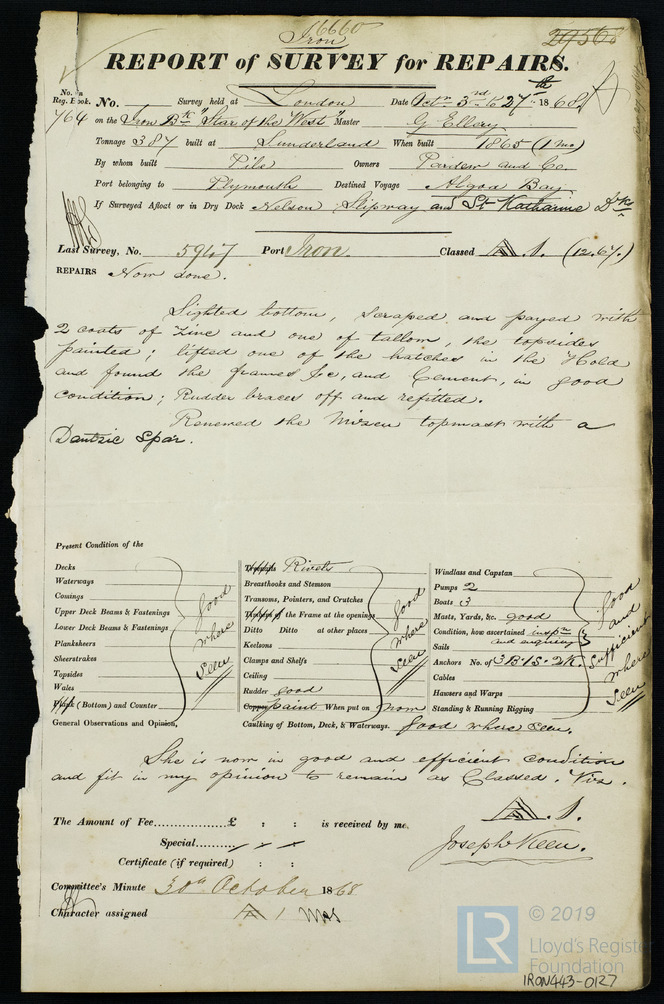 6660
Iron
29566
REPORT of SURVEY for REPAIRS.
No. in Reg. Book. No. Survey held at London Date Octr 3rd to 27th 1868
764 on the Iron Bk "Star of the West" Master G Ellery
Tonnage 387 built at Sunderland When built 1865 (1 mo)
By whom built Pile Owners Pardew and Co.
Port belonging to Plymouth Destined Voyage Algoa Bay
If Surveyed Afloat or in Dry Dock Nelson Slipway and St Katharine Dks
Last Survey, No. 5947 Port Iron. Classed A.1. (12.67.)
REPAIRS Now done.
Sighted bottom, scraped and payed with
2 coats of Zinc and one of tallow, the topsides
painted; lifted one of the hatches in the Hold
and found the frames &c, and Cement, in good
condition; Rudder braces off and refitted.
Renewed the Mizen topmast with a
Dantzic Spar.
Present Condition of the
Decks
Waterways
Comings
Upper Deck Beams & Fastenings
Lower Deck Beams & Fastenings
Planksheers
Sheerstrakes
Topsides
Wales
Plank (Bottom) and Counter
good where seen
General Observations and Opinion,
Treenails Rivets
Breasthooks and Stemson
Transoms, Pointers, and Crutches
Timbers of the Frame at the openings
Ditto Ditto at other places
Keelsons
Clamps and Shelfs
Ceiling
Rudder good
Copper paint When put on now
good where seen
Caulking of Bottom, Deck, & Waterways. good where seen.
Windlass and Capstan
Pumps 2
Boats 3
Masts, Yards, &c. good
Condition, how ascertained inspn and enquiry
Sails
Anchors No. of 3 B. 1 S. 2 K.
Cables
Hawsers and Warps
Standing & Running Rigging
good and sufficient where seen
She is now in good and efficient condition
and fit in my opinion to remain as Classed. Viz.
A.1.
The Amount of Fee............... £ : : is received by me,
Special.........
Joseph Keen.
Certificate (if required) : :
Committee's Minute 30th October 1868
Character assigned A 1
© 2019
LR
Lloyd's Register
Foundation
IRON443-0127